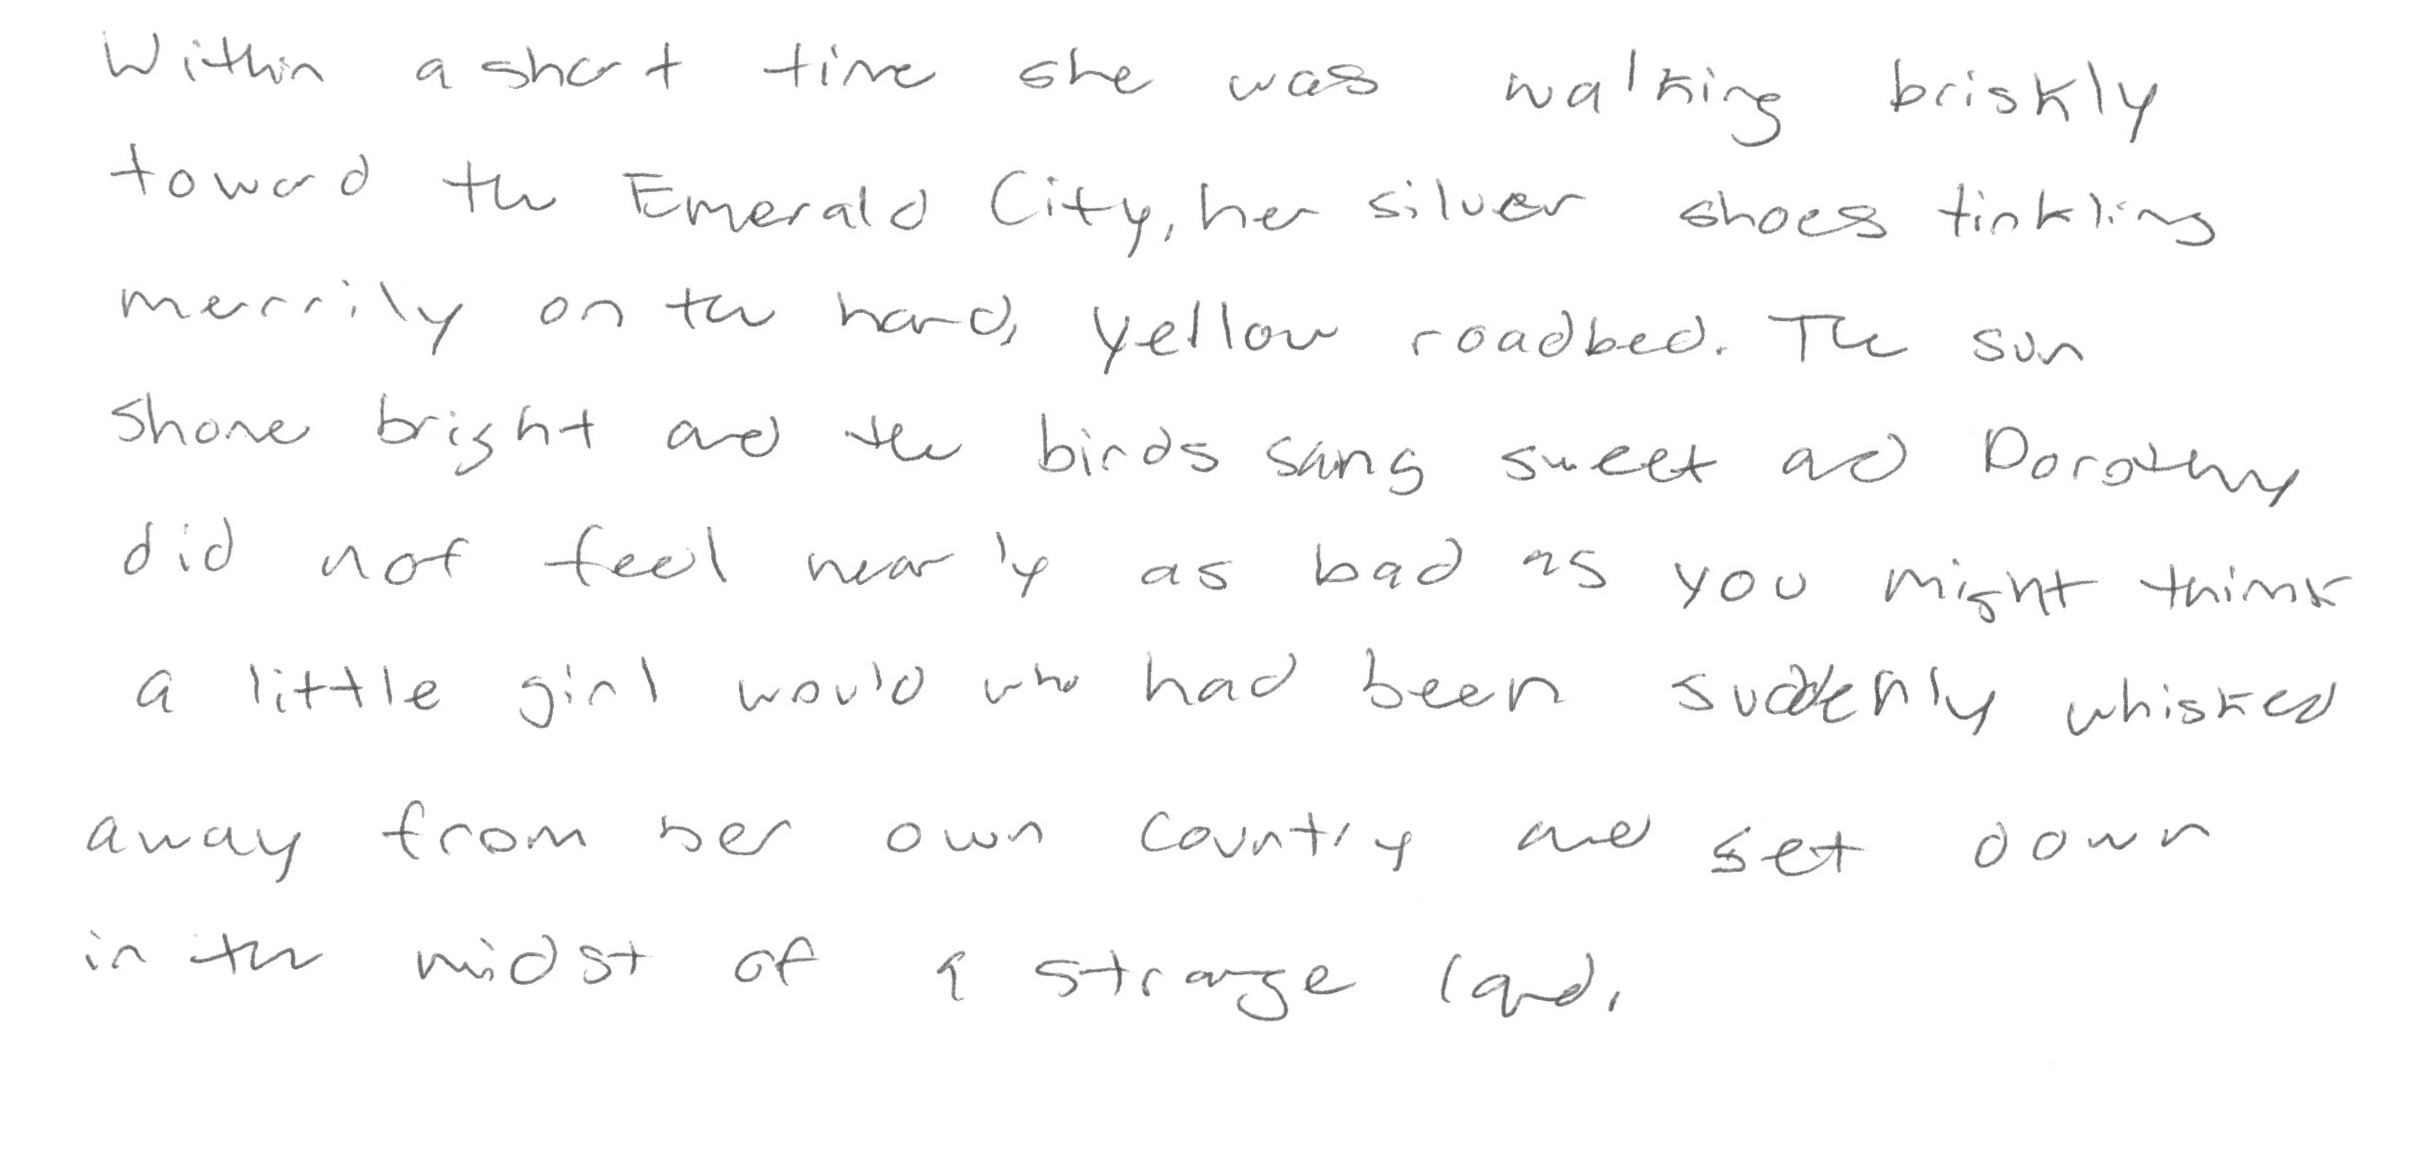 Within a short time she was walking briskly
toward the Emerald City, her silver shoes tinkling
merrily on the hard, yellow roadbed. The sun
shone bright and the birds sang sweet and Dorothy
did not feel nearly as bad as you might think
a little girl would who had been suddenly whisked
away from her own country and set down
in the midst of a strange land.